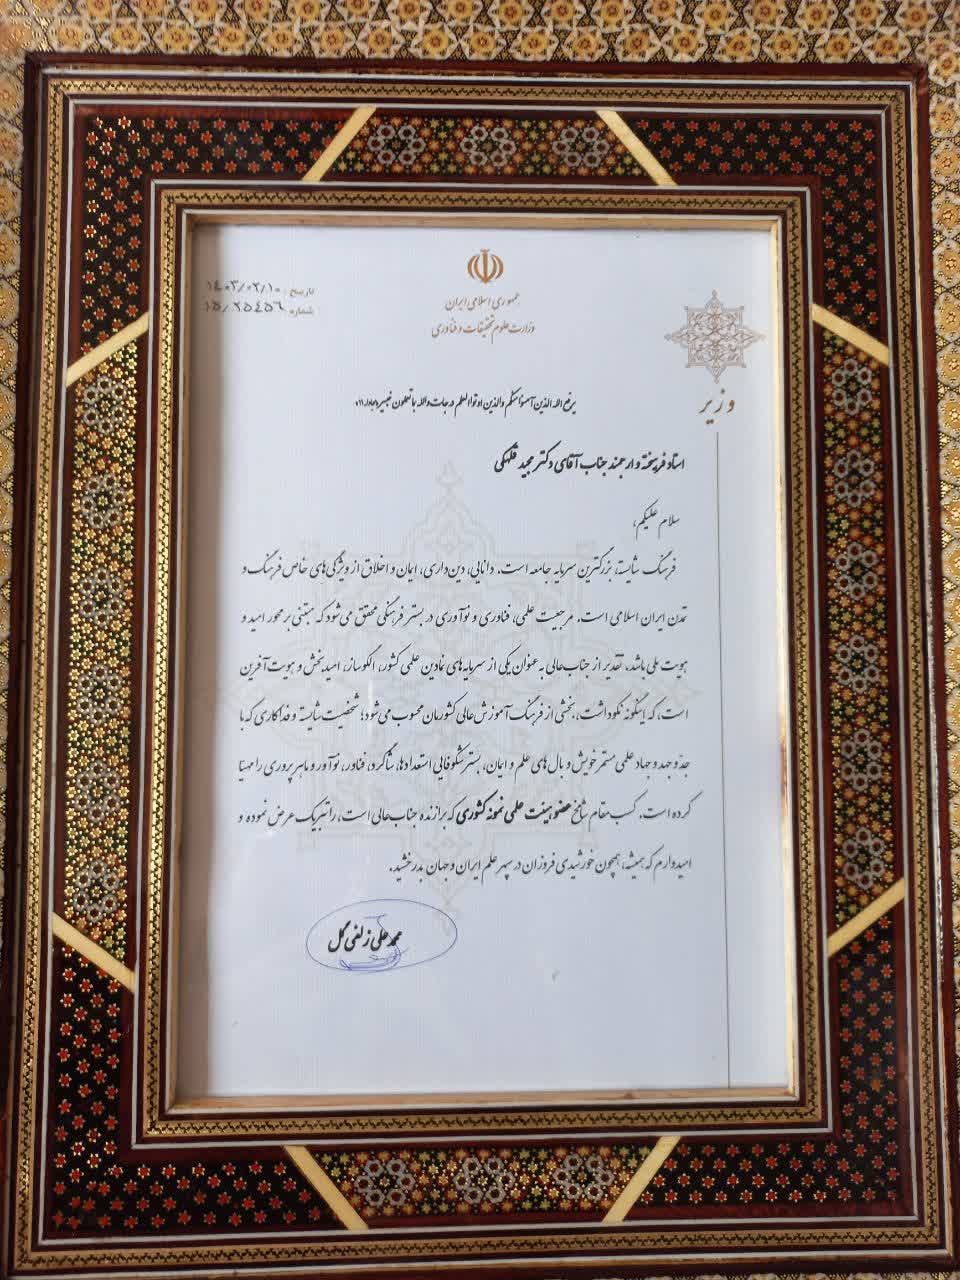 جمهوری اسلامی ایران
وزارت علوم تحقیقات و فناوری
تاریخ: ۱۴۰۳/۰۲/۱۰
شماره: ۱۵/۲۵۴۵۶
وزیر
یرفع الله الذین آمنوا منکم والذین اوتوا العلم درجات والله بما تعملون خبیر
استاد فرهیخته و ارجمند جناب آقای دکتر مجید
سلام علیکم،
فرهنگ شایسته، بزرگترین سرمایه جامعه است. دانایی، دین‌داری، ایمان و اخلاق از ویژگی‌های خاص فرهنگ و
تمدن ایران اسلامی است. مرجعیت علمی، فناوری و نوآوری در بستر فرهنگی محقق می‌شود که مبتنی بر محور امید و
هویت ملی باشد. تقدیر از جناب‌عالی به عنوان یکی از سرمایه‌های نمادین علمی کشور، الگوساز، امیدبخش و هویت آفرین
است، که اینگونه نکوداشت، بخشی از فرهنگ آموزش عالی کشورمان محسوب می‌شود؛ شخصیت شایسته و فداکاری که با
جدّ و جهد و جهاد علمی مستمر خویش و بال‌های علم و ایمان، بستر شکوفایی استعدادها، شاگرد، فناور، نوآور و ماهر پروری را مهیا
کرده است. کسب مقام شامخ عضو هیئت علمی نمونه کشوری که برازنده جناب عالی است، را تبریک عرض نموده و
امیدوارم که همیشه، همچون خورشیدی فروزان در سپهر علم ایران و جهان بدرخشید.
محمدعلی زلفی گل